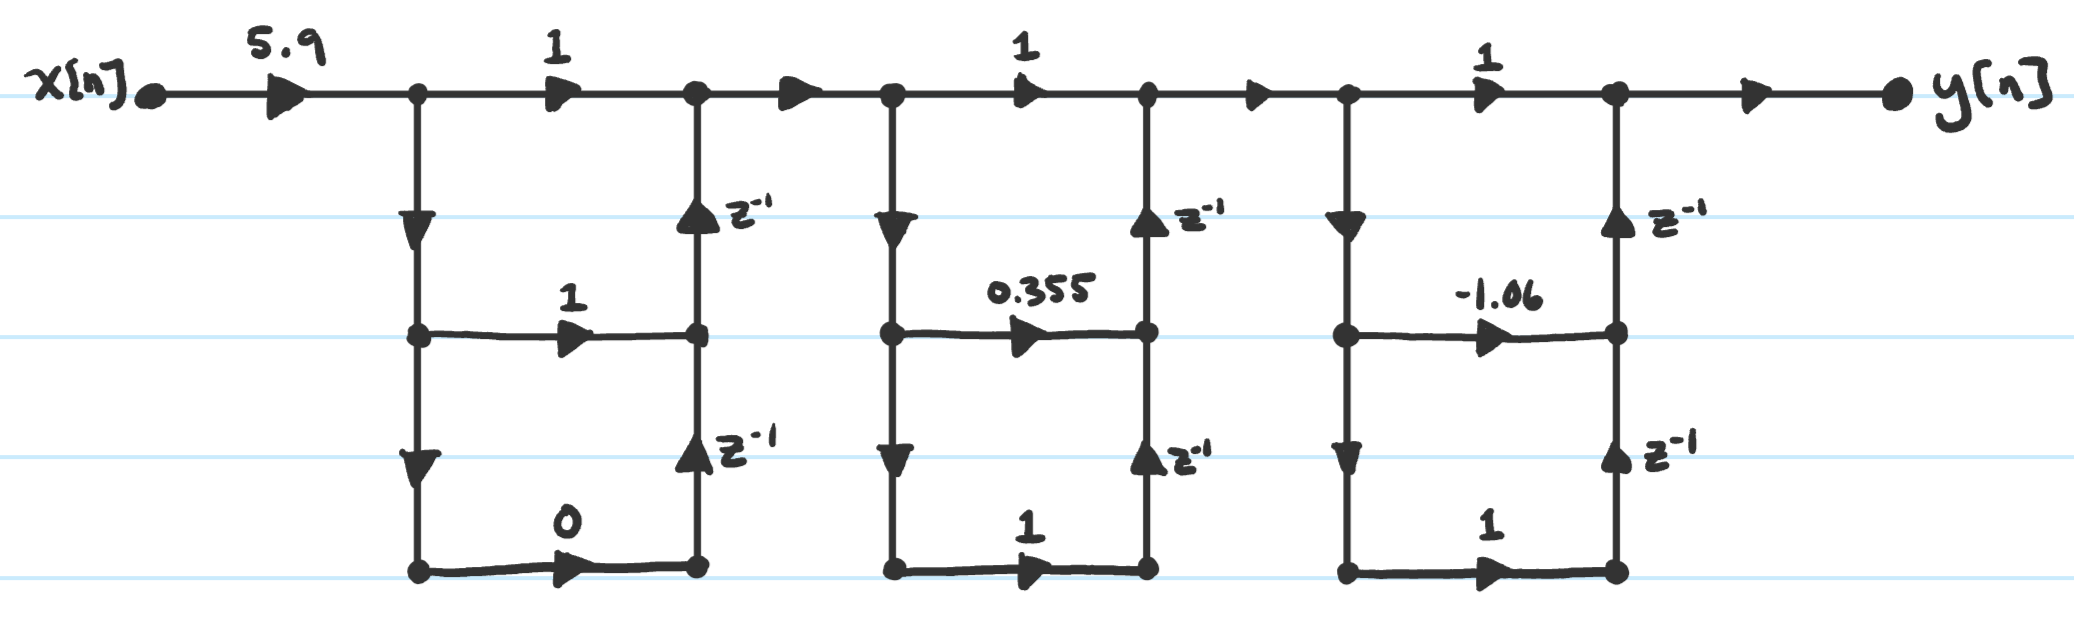 5.9 1 1 1
x[n] y[n]
z⁻¹ z⁻¹ z⁻¹
1 0.355 -1.06
z⁻¹ z⁻¹ z⁻¹
0 1 1